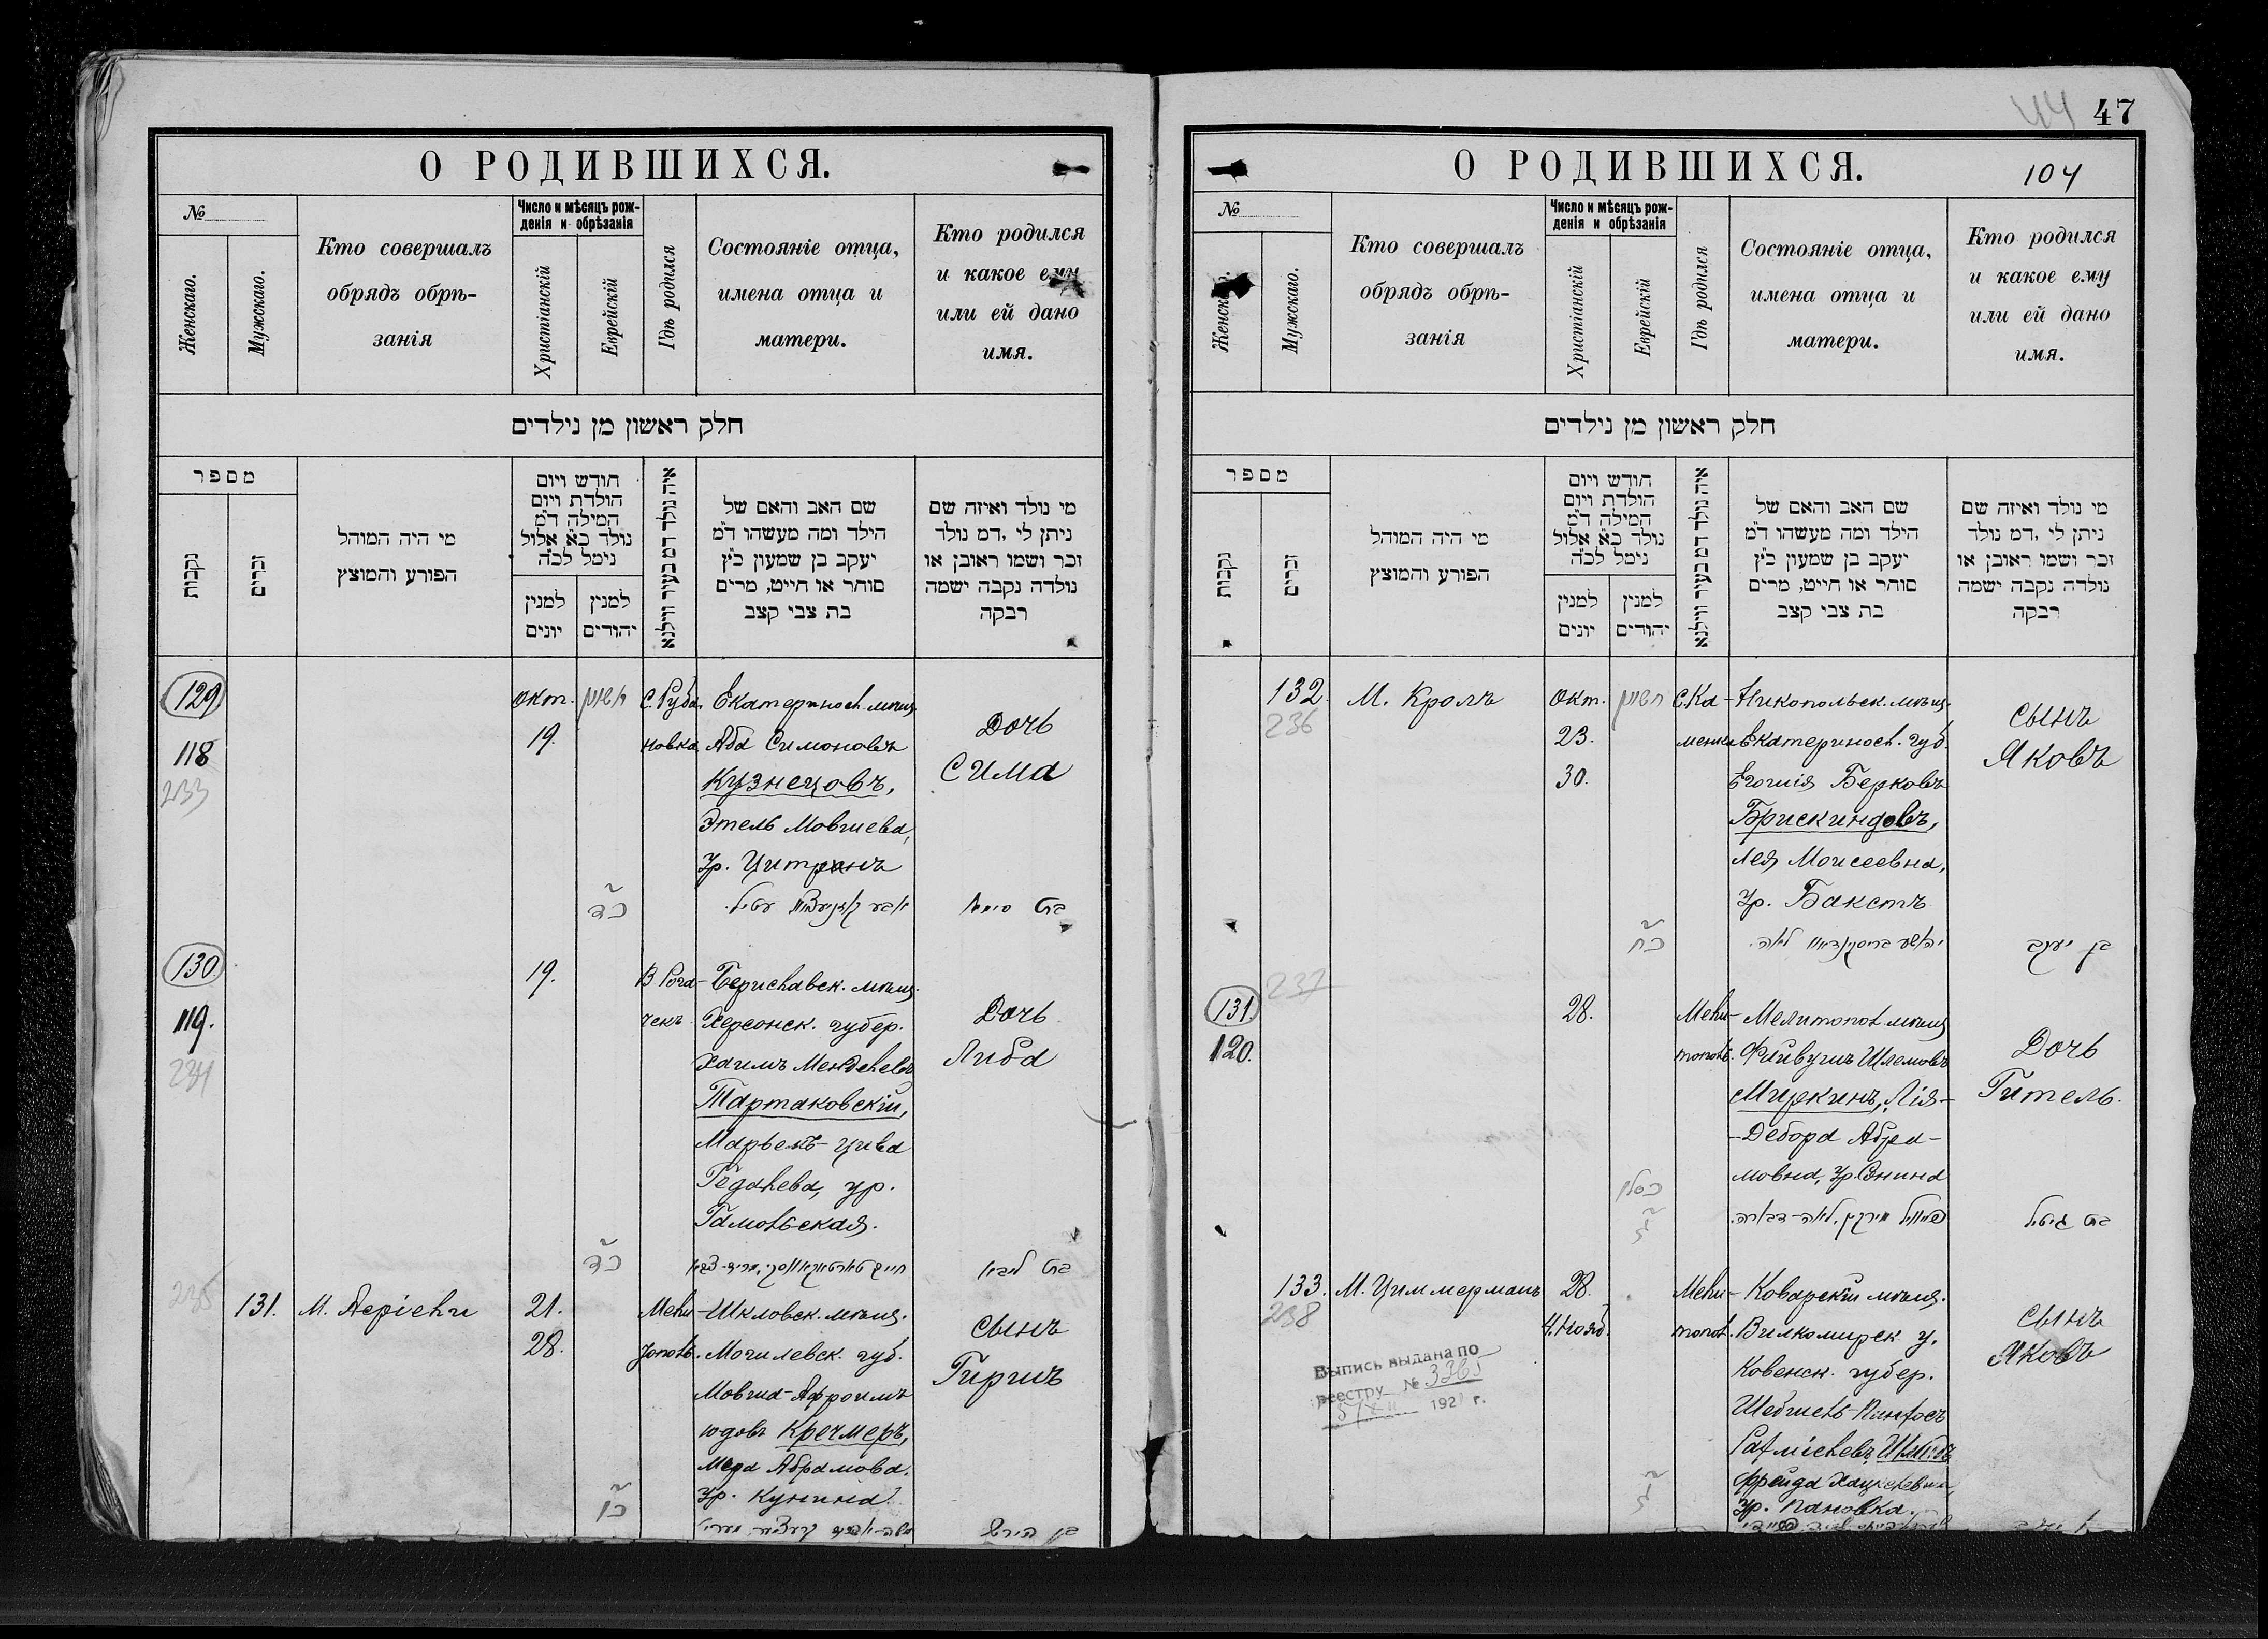 О РОДИВШИХСЯ.
№
Женскаго.
Мужскаго.
Кто совершалъ
обрядъ обрѣ-
занія
Число и мѣсяцъ рож-
денія и обрѣзанія
Христіанскій
Еврейскій
Гдѣ родился
Состояніе отца,
имена отца и
матери.
Кто родился
и какое ему
или ей дано
имя.
חלק ראשון מן נילדים
מספר
נקבות
זכרים
מי היה המוהל
הפורע והמוצץ
חודש ויום
הולדת ויום
המילה ד"מ
נולד כ"א אלול
נימל לכ"ה
למנין
יונים
למנין
יהודים
איה נולד דמ בעיר ווילנא
שם האב והאם של
הילד ומה מעשהו ד"מ
יעקב בן שמעון כ"ץ
סוחר או חייט, מרים
בת צבי קצב
מי נולד ואיזה שם
ניתן לי, דמ נולד
זכר ושמו ראובן או
נולדה נקבה ישמה
רבקה
129
118
233
окт.
19.
חשון
כד
С. Руба
новка
Екатеринос. мѣщ.
Аба Симоновъ
Кузнецовъ,
Этель Мовшева,
ур. Цитринъ
Дочь
Сима
130
119.
234
19.
כד
В Рога-
чекъ
Бериславск. мѣщ.
Херсонск. губер.
Хаимъ Менделевъ
Тартаковскій,
Марьемъ-Цива
Гедалева, ур.
Гамовская.
Дочь
Либа
בת ליבא
235
131.
М. Аеріевъ
21.
28.
כו
Мели-
тополь.
Шкловск. мѣщ.
Могилевск. губ.
Мовша-Афроимъ
Юдовъ Кречмеръ,
Мера Абрамова.
ур. Кунина.
сынъ
Гиршъ
בן הירש
44
47
О РОДИВШИХСЯ.
104
№
Женскаго.
Мужскаго.
Кто совершалъ
обрядъ обрѣ-
занія
Число и мѣсяцъ рож-
денія и обрѣзанія
Христіанскій
Еврейскій
Гдѣ родился
Состояніе отца,
имена отца и
матери.
Кто родился
и какое ему
или ей дано
имя.
חלק ראשון מן נילדים
מספר
נקבות
זכרים
מי היה המוהל
הפורע והמוצץ
חודש ויום
הולדת ויום
המילה ד"מ
נולד כ"א אלול
נימל לכ"ה
למנין
יונים
למנין
יהודים
איה נולד דמ בעיר ווילנא
שם האב והאם של
הילד ומה מעשהו ד"מ
יעקב בן שמעון כ"ץ
סוחר או חייט, מרים
בת צבי קצב
מי נולד ואיזה שם
ניתן לי, דמ נולד
זכר ושמו ראובן או
נולדה נקבה ישמה
רבקה
132.
236
М. Кроль
окт.
23.
30.
חשון
כח
С. Ка-
менка
Никопольск. мѣщ.
Екатеринос. губ.
Берковъ
Брискиндовъ,
Лея Моисеевна,
ур. Бакстъ
сынъ
Яковъ
בן יעקב
237
131.
120.
28.
כסלו
ג
Мели-
тополь.
Мелитопол. мѣщ.
Файвушъ Шлемовъ
Миркинъ, Лія-
-Дебора Абра-
мовна, ур.
Дочь
Гитель.
בת גיטל
133.
238
М. Циммерманъ
28.
4. нояб.
ג
Мели-
топол.
Коварскій мѣщ.
Вилкомирск. у.
Ковенск. губер.
Шебшель-Пинхосъ
Фрейда Хацкелевна,
ур. Пановка.
сынъ
Яковъ
Выпись выдана по
реестру № 3365
192 г.